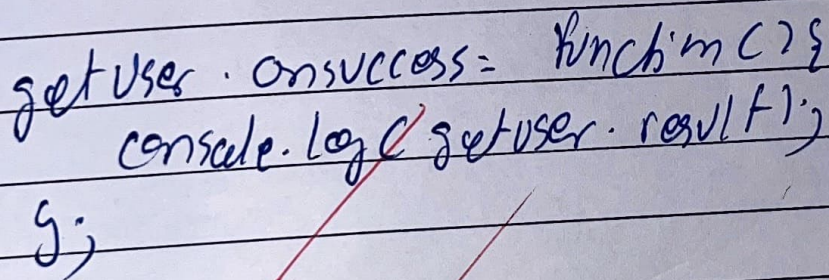 getUser.onsuccess = function() {
console.log(getUser.result);
};